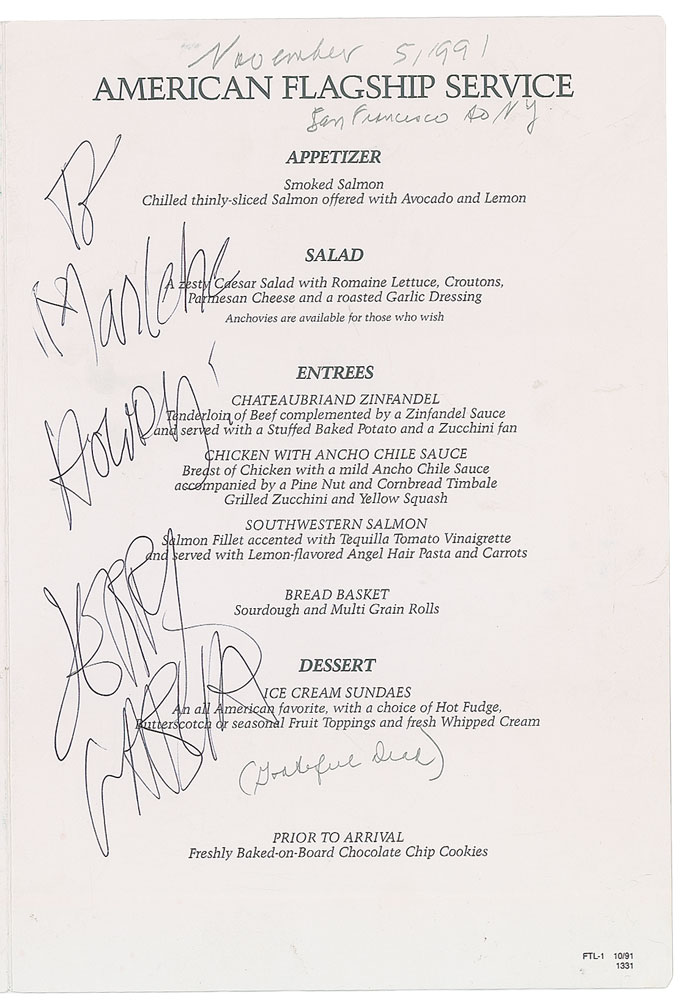 November 5, 1991
AMERICAN FLAGSHIP SERVICE
San Francisco to NY.
APPETIZER
Smoked Salmon
Chilled thinly-sliced Salmon offered with Avocado and Lemon
To
SALAD
"Marlene
A zesty Caesar Salad with Romaine Lettuce, Croutons,
Parmesan Cheese and a roasted Garlic Dressing
Anchovies are available for those who wish
ENTREES
CHATEAUBRIAND ZINFANDEL
Tenderloin of Beef complemented by a Zinfandel Sauce
and served with a Stuffed Baked Potato and a Zucchini fan
Howdy'
CHICKEN WITH ANCHO CHILE SAUCE
Breast of Chicken with a mild Ancho Chile Sauce
accompanied by a Pine Nut and Cornbread Timbale
Grilled Zucchini and Yellow Squash
SOUTHWESTERN SALMON
Salmon Fillet accented with Tequilla Tomato Vinaigrette
and served with Lemon-flavored Angel Hair Pasta and Carrots
BREAD BASKET
Sourdough and Multi Grain Rolls
JERRY
DESSERT
ICE CREAM SUNDAES
An all American favorite, with a choice of Hot Fudge,
Butterscotch or seasonal Fruit Toppings and fresh Whipped Cream
GARCIA
(Grateful Dead)
PRIOR TO ARRIVAL
Freshly Baked-on-Board Chocolate Chip Cookies
FTL-1 10/91
1331